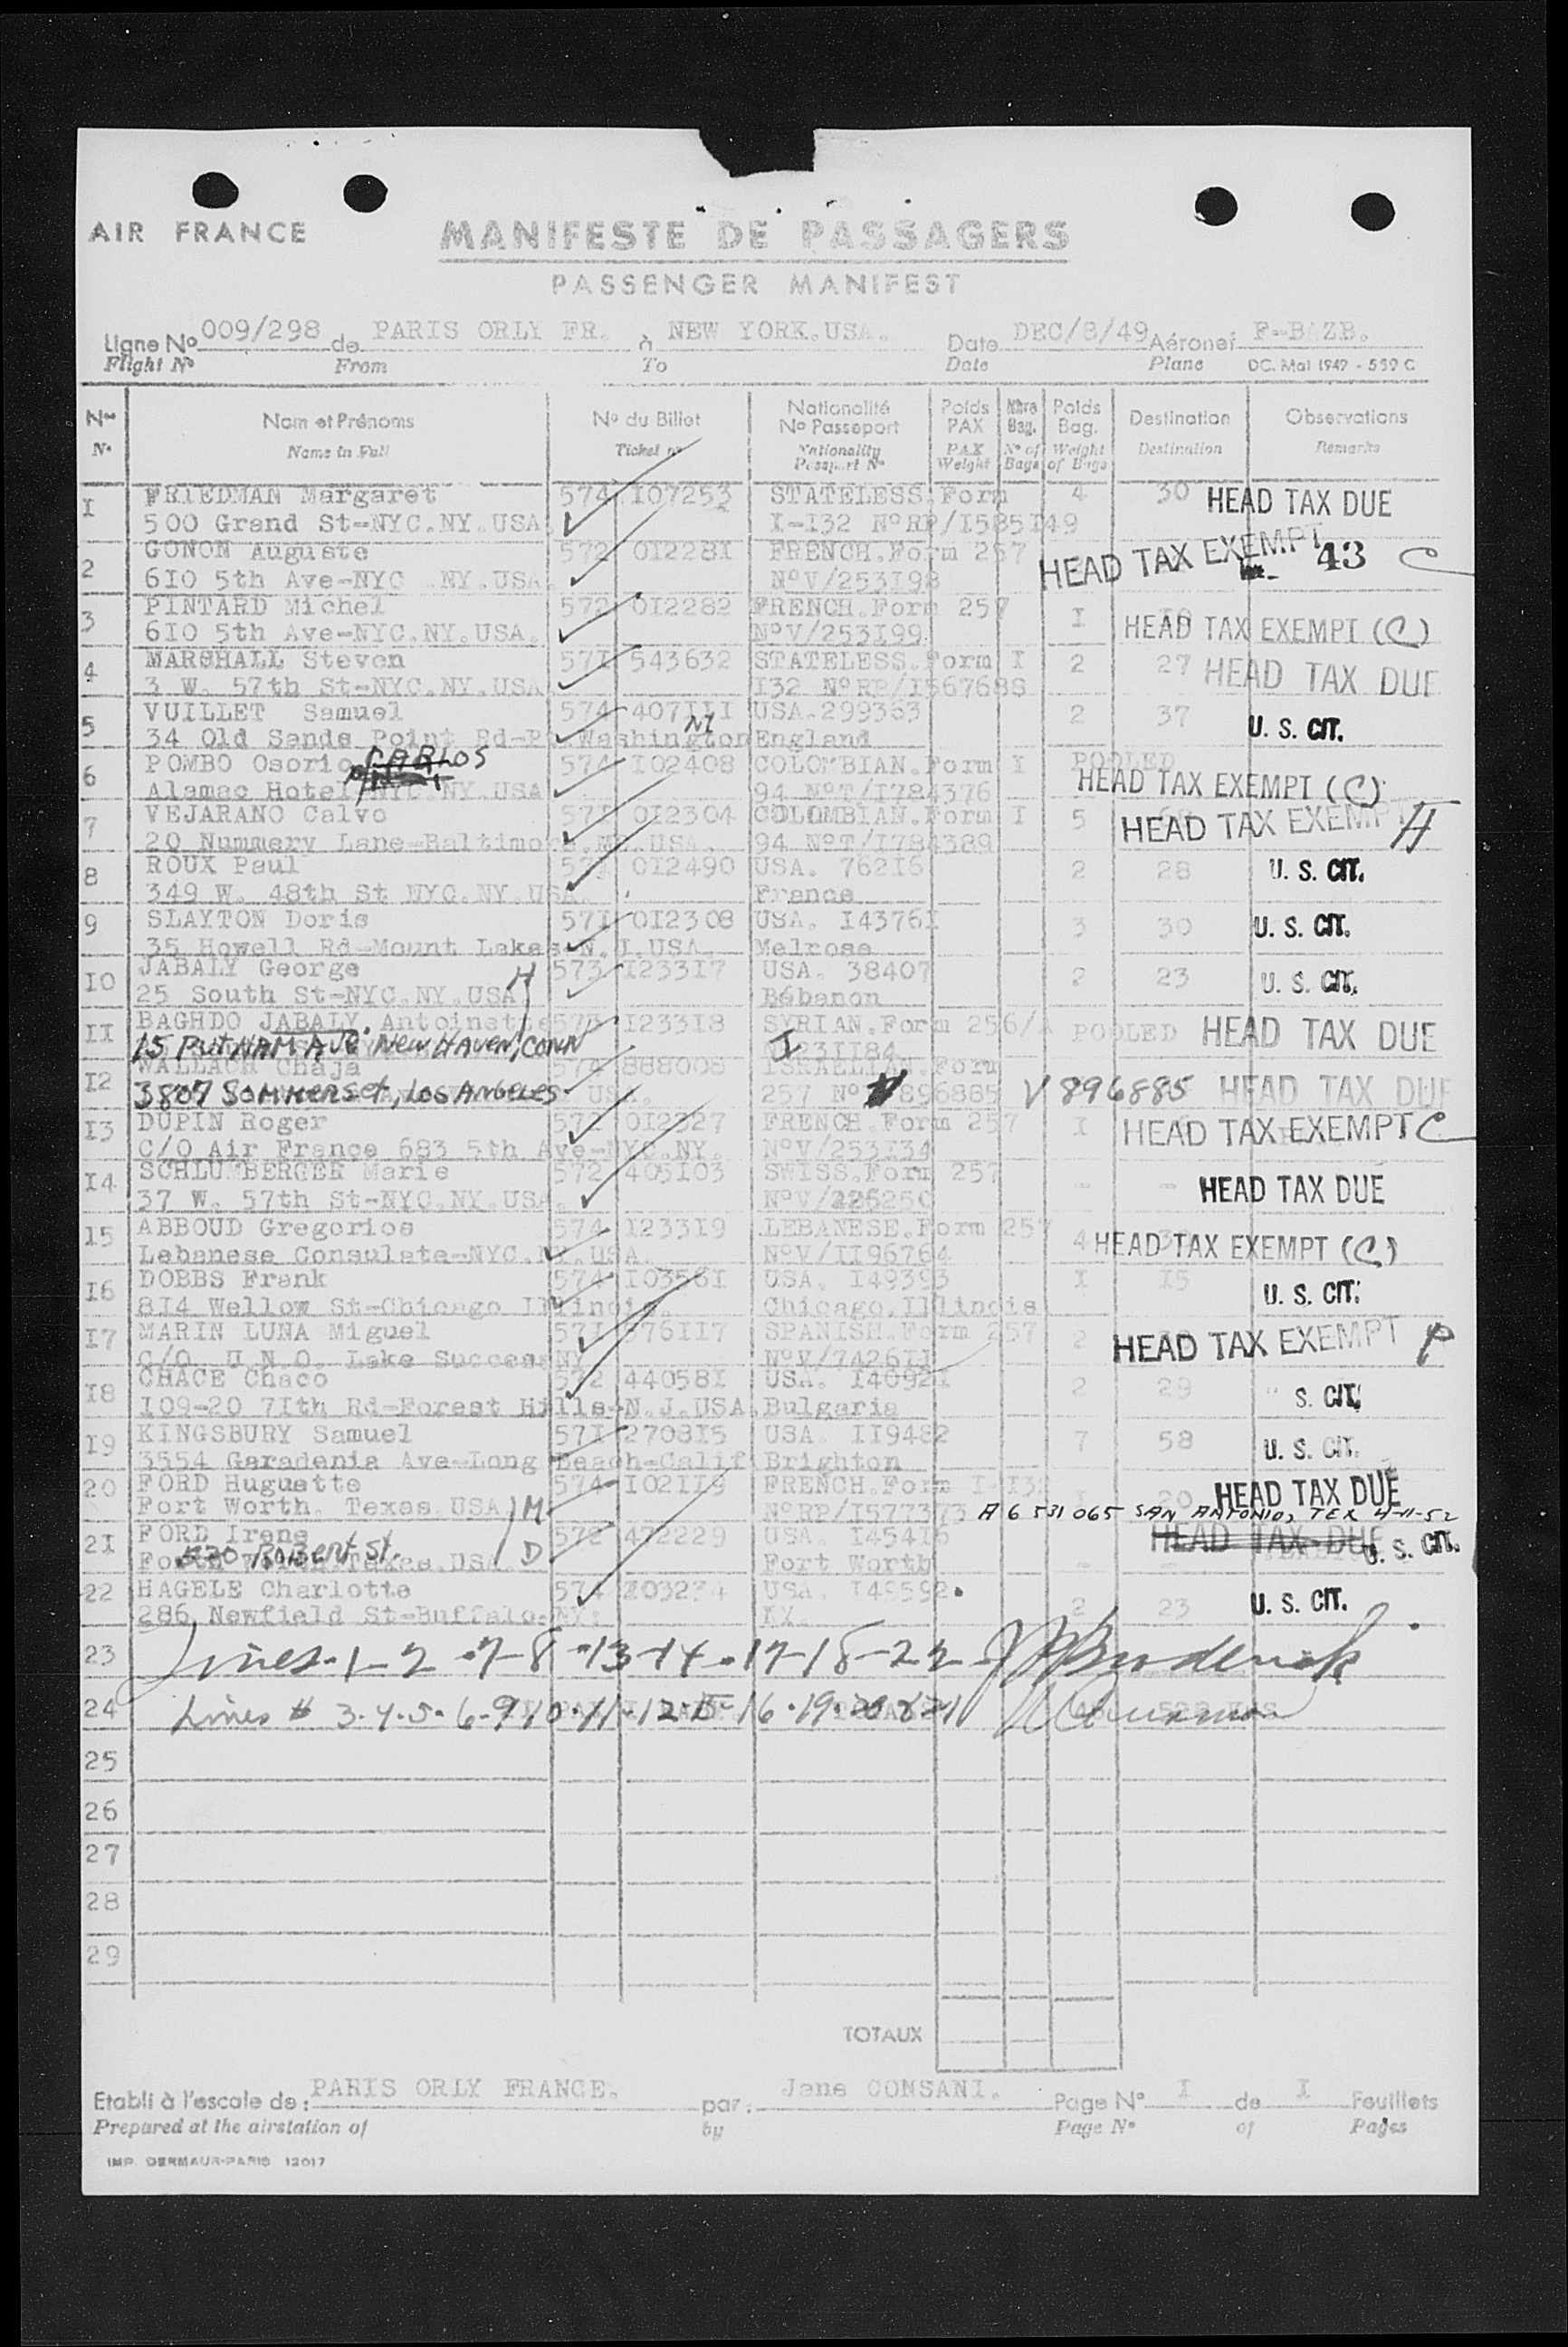 AIR FRANCE
MANIFESTE DE PASSAGERS
PASSENGER MANIFEST
Ligne No 009/298 de PARIS ORLY FR. à NEW YORK.USA. Date DEC/8/49 Aéronef
Flight No From To Date Plane DC. Mai 1949 - 559 C
Nos Nom et Prénoms No du Billet Nationalité No Passeport Poids PAX Nbre Bag. Poids Bag. Destination Observations
No Name in Full Ticket no Nationality Passport No PAX Weight No of Bags Weight of Bags Destination Remarks
I FRIEDMAN Margaret 574 107253 STATELESS.Form 4 30 HEAD TAX DUE
500 Grand St-NYC.NY.USA. I-I32 NoRP/I585149
2 GONON Auguste 572 0I228I FRENCH.Form 257 HEAD TAX EXEMPT 43 C
6I0 5th Ave-NYC NY.USA. NoV/253I98
3 PINTARD Michel 572 0I2282 FRENCH.Form 257 I HEAD TAX EXEMPT (C)
6I0 5th Ave-NYC.NY.USA. NoV/253I99
4 MARSHALL Steven 57I 543632 STATELESS.Form I 2 27 HEAD TAX DUE
3 W. 57th St-NYC.NY.USA I32
5 VUILLET Samuel 574 407III USA.299363 2 37 U. S. CIT.
34 Old Sands Point Rd-Pt.Washington NY England
6 POMBO Osorio CARLOS 574 I02408 COLOMBIAN.Form I POOLED
Alamac Hotel NYC.NY.USA 94 NoT/I784376 HEAD TAX EXEMPT (C)
7 VEJARANO Calvo 57I 0I2304 COLOMBIAN.Form I 5 HEAD TAX EXEMPT H
20 Nummery Lane-Baltimore USA 94 NoT/I784389
8 ROUX Paul 57I 0I2490 USA. 762I6 2 28 U. S. CIT.
349 W. 48th St NYC.NY.USA. France
9 SLAYTON Doris 57I 0I2308 USA. I4376I 3 30 U. S. CIT.
35 Howell Rd-Mount Lakes-N.J.USA Melrose
I0 JABALY George H 573 I233I7 USA. 38407 2 23 U. S. CIT.
25 South St-NYC.NY.USA Bébanon
II BAGHDO JABALY. Antoinette 573 I233I8 SYRIAN.Form 256/ POOLED HEAD TAX DUE
15 PUTNAM AVE New HAVEN, CONN I 231184
I2 WALLACH Chaja 574 888008 ISRAELIAN.Form
3807 Sommerset, Los Angeles USA. 257 No 896885 V 896885 HEAD TAX DUE
I3 DUPIN Roger 572 0I2327 FRENCH.Form 257 I HEAD TAX EXEMPT C
C/O Air France 683 5th Ave-NYC.NY. NoV/253I34
I4 SCHLUMBERGER Marie 572 405I03 SWISS.Form 257 - - HEAD TAX DUE
37 W. 57th St-NYC.NY.USA.
I5 ABBOUD Gregorios 574 I233I9 LEBANESE.Form 257 4 HEAD TAX EXEMPT (C)
Lebanese Consulate-NYC.NY.USA. NoV/II96764
I6 DOBBS Frank 574 I0356I USA. I49393 I I5 U. S. CIT.
8I4 Wellow St-Chicago Illinois. Chicago.Illinois
I7 MARIN LUNA Miguel 57I 376II7 SPANISH.Form 257 2 HEAD TAX EXEMPT P
C/O U.N.O. Lake Success NY NoV/7426II
I8 CHACE Chaco 572 44058I USA. I4092I 2 29 S. CIT.
I09-20 7Ith Rd-Forest Hills-N.J.USA. Bulgaria
I9 KINGSBURY Samuel 57I 2708I5 USA II9482 7 58 U. S. CIT.
3554 Garadenia Ave-Long Beach-Calif Brighton
20 FORD Huguette 574 I02II9 FRENCH.Form I-I32 20 HEAD TAX DUE
Fort Worth. Texas USA M NoRP/I577373 A 6 531 065 SAN ANTONIO, TEX 4-11-52
2I FORD Irene 572 472229 USA. I454I6 HEAD TAX DUE U. S. CIT.
Fort Worth.Texas.USA. Robert St. D Fort Worth - -
22 HAGELE Charlotte 574 USA. I49592. 2 23 U. S. CIT.
286 Newfield St-Buffalo-NY.
23 Lines-1-2-7-8-13-14-17-18-22
24 Lines # 3.4.5.6.9.10.11.12.15.16.19.20 & 21
25
26
27
28
29
TOTAUX
Etabli à l'escale de: PARIS ORLY FRANCE. par: Jane CONSANI. Page No I de I Feuillets
Prepared at the airstation of by Page No of Pages
IMP. DERMAUR-PARIS 12017